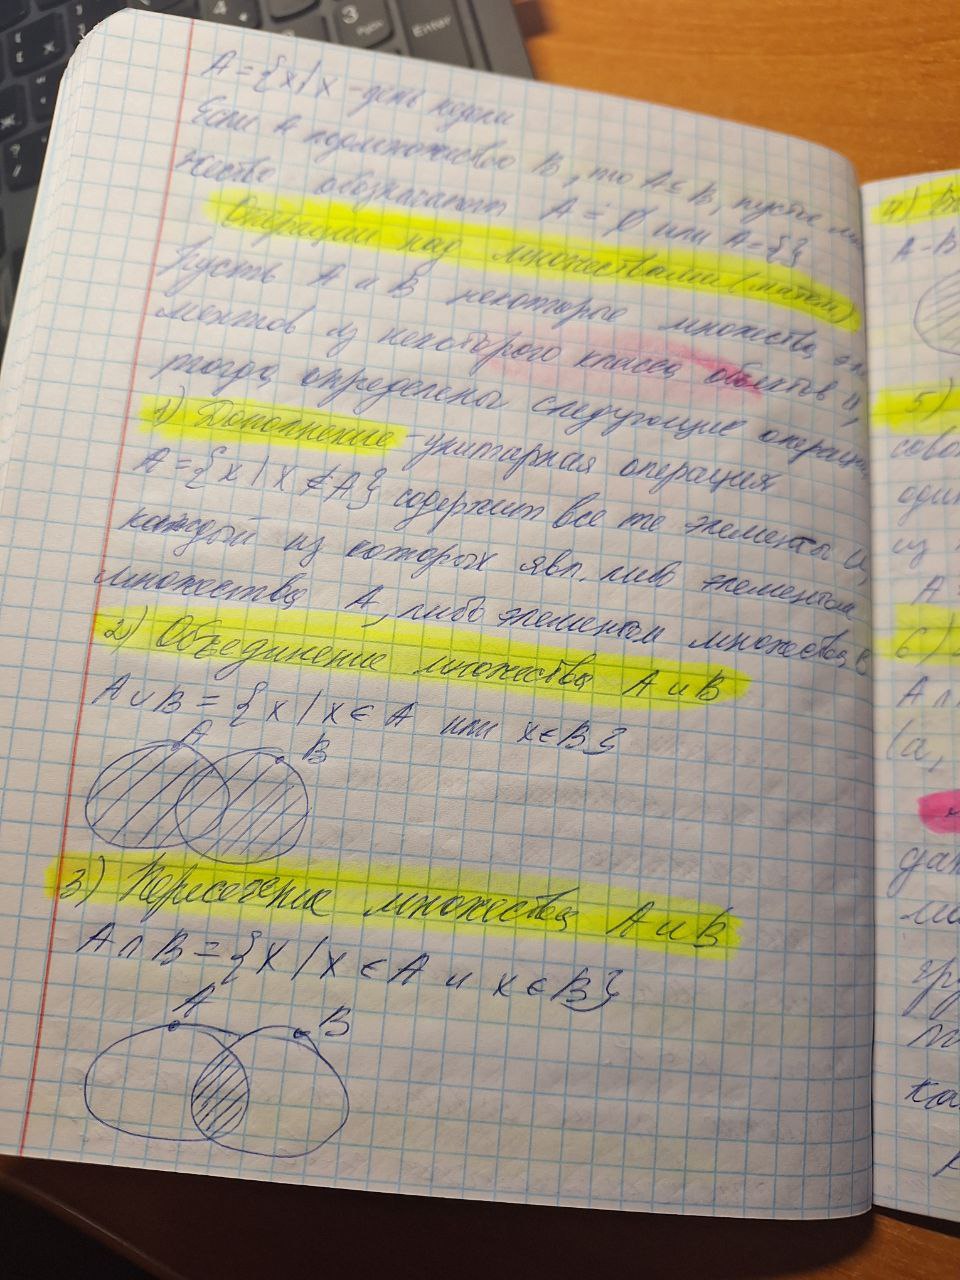 A = {x | x - день недели
Если A подмножество B, то A ∈ B, пустое мно
жество обозначают A = ∅ или A = {}
Операции над множествами (матем)
Пусть A и B некоторое множества эле
ментов из некоторого класса объектов U,
тогда определены следующие операции
1) Дополнение - унитарная операция
A = {x | x ∉ A} содержит все те элементы U,
каждый из которых явл. либо элементом
множества A, либо элементом множества B
2) Объединение множества A и B
A ∪ B = {x | x ∈ A или x ∈ B}
A B
3) Пересечение множества A и B
A ∩ B = {x | x ∈ A и x ∈ B}
A B
4)
A - B
5)
сово
один
из
A
6)
A ∩
(a,
дан
Enter
3
4